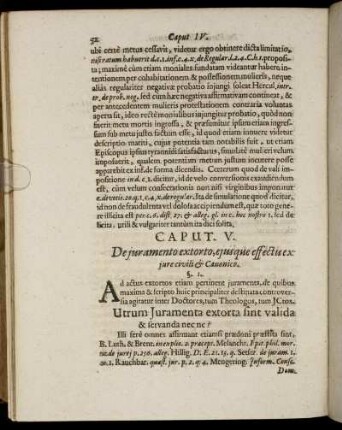 52 Caput IV.
ubi certè metus cessavit, videtur ergo obtinere dicta limitatio,
nisi ratum habuerit d.c.1. inf. c.4.x. de Regular. l.2.4. C.h.t. proposi-
ta; maximè cùm etiam moniales fundatam videantur habere in-
tentionem per cohabitationem & possessionem mulieris, neque
aliàs regulariter negativa probatio injungi soleat
de prob. neg. sed cum hæc negativa affirmativam contineat, &
per antecedentem mulieris protestationem contraria voluntas
aperta sit, ideo rectè monialibus injungitur probatio, quòd non
fuerit meta mortis ingressa, & præsumitur ipsum etiam ingres-
sum sub metu justo factum esse, id quod etiam innuere videtur
descriptio mariti, cujus potentia tam notabilis fuit, ut etiam
Episcopus ipsius tyrannidi satisfacturus, simul
impossuerit, qualem potentiam metum justum incutere posse
apparebit ex inf. de forma dicendis. Cæterum quod de vali im-
positione dicitur, id de velo conversionis exaudiendum
est, cùm velum consecrationis non nisi virginibus imponatur
sita de simulatione quod dicitur,
id non de fraudulenta vel dolosa accipiendum est, quæ toto gene-
re illicita est per & alleg. gl. in c. hoc nostro 1. sed de
licita, utili & vulgariter tantùm ita dici solita.
CAPUT. V.
De juramento extorto, ejusque effectu ex
jure civili & Canonico.
§. 1.
Ad actus extortos etiam pertinent juramenta, de quibus
maxima & scriptu huic principaliter destinata controver-
sia agitatur inter Doctores, tum Theologos, tum JCtos,
Utrum Juramenta extorta sint valida
& servanda nec ne?
Illi ferè omnes affirmant etiamsi prædoni præstita sint,
B. Luth. & Brent. in explic. 2. præcept. Melancht. Epit. phil. mor.
tit. de jurej p.250. alleg. Hillig. D. E. 22. 15. 9. Senfft. de juram. 1.
Rauchbar. quæst. jur. p. 2. q. 4. Mengering. Inform. Consc.
Dom.